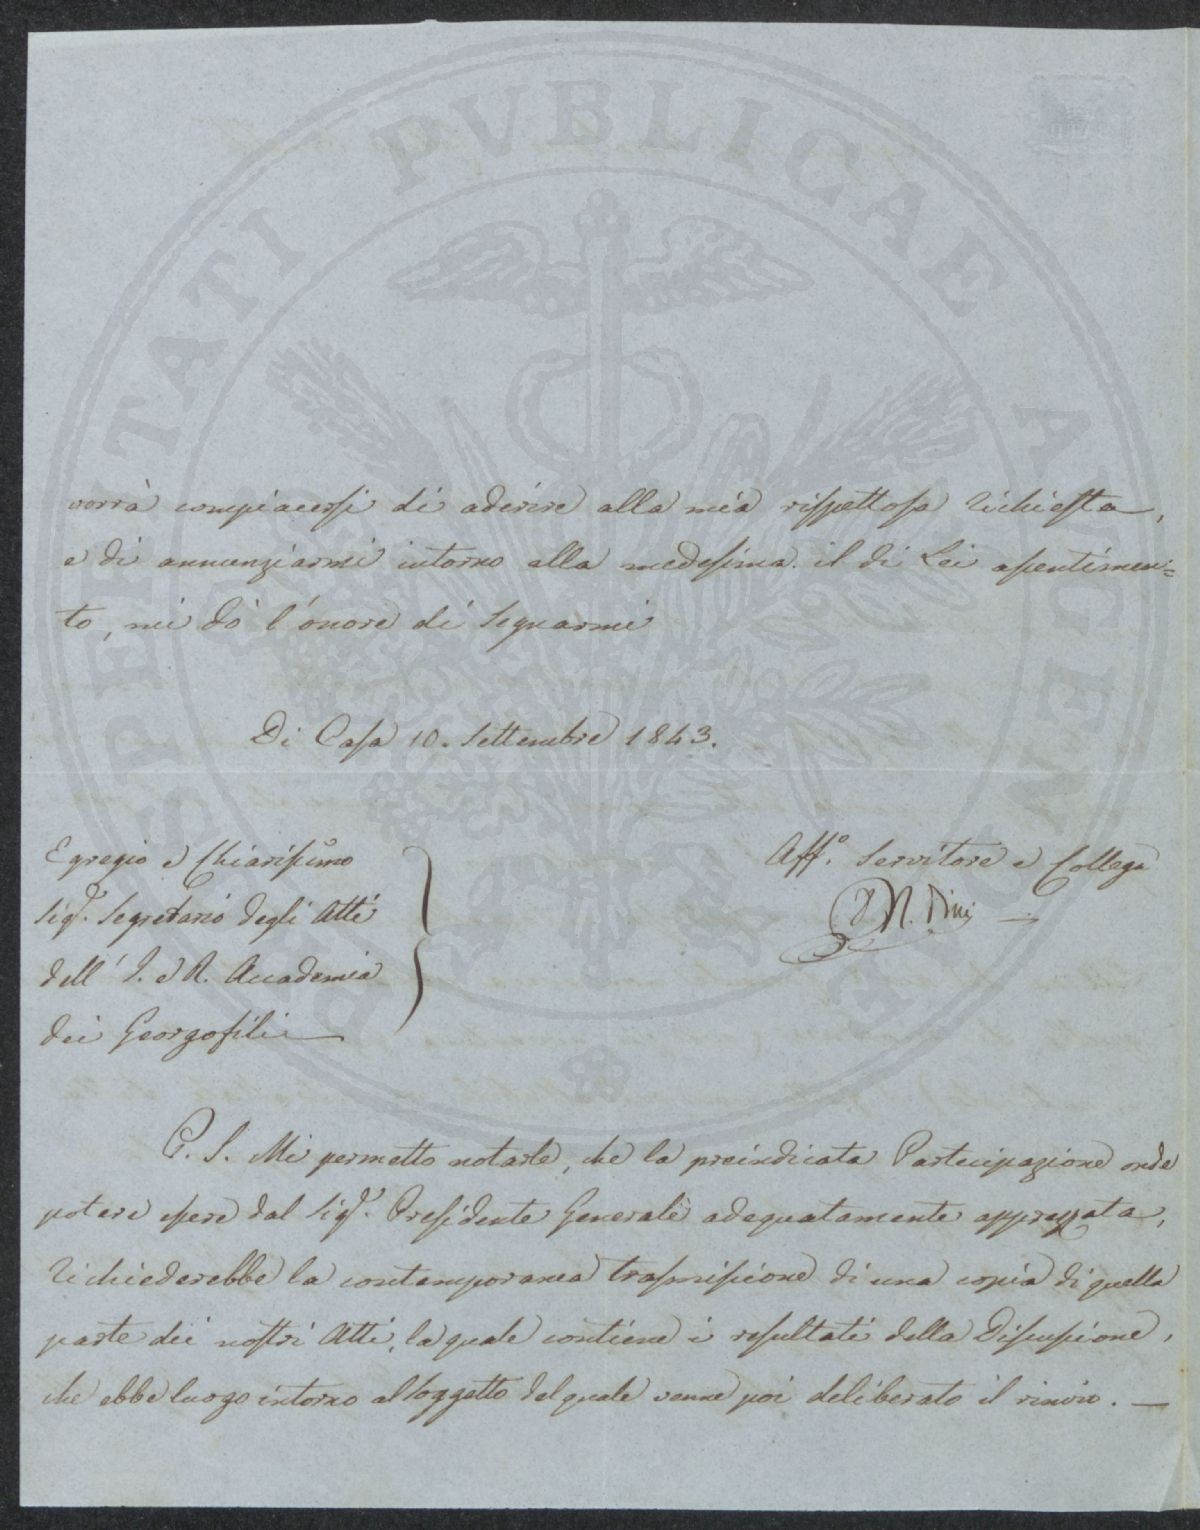 PROSPERITATI PVBLICAE AVGENDAE
vorrà compiacersi di aderire alla mia rispettosa richiesta,
e di annunziarmi intorno alla medesima il di Lei assentimen=
to, mi dò l'onore di segnarmi
Di Casa 10. Settembre 1843.
Egregio e Chiarissimo
Sigr. Segretario degli Atti
dell' I. e R. Accademia
dei Georgofili
Affo. Servitore e Collega
N. Dini
P. S. Mi permetto notarle, che la preindicata Partecipazione onde
potere essere dal Sigr. Presidente Generale adeguatamente apprezzata,
richiederebbe la contemporanea trasmissione di una copia di quella
parte dei nostri Atti, la quale contiene i resultati della Discussione,
che ebbe luogo intorno al Soggetto del quale venne poi deliberato il rinvio. —